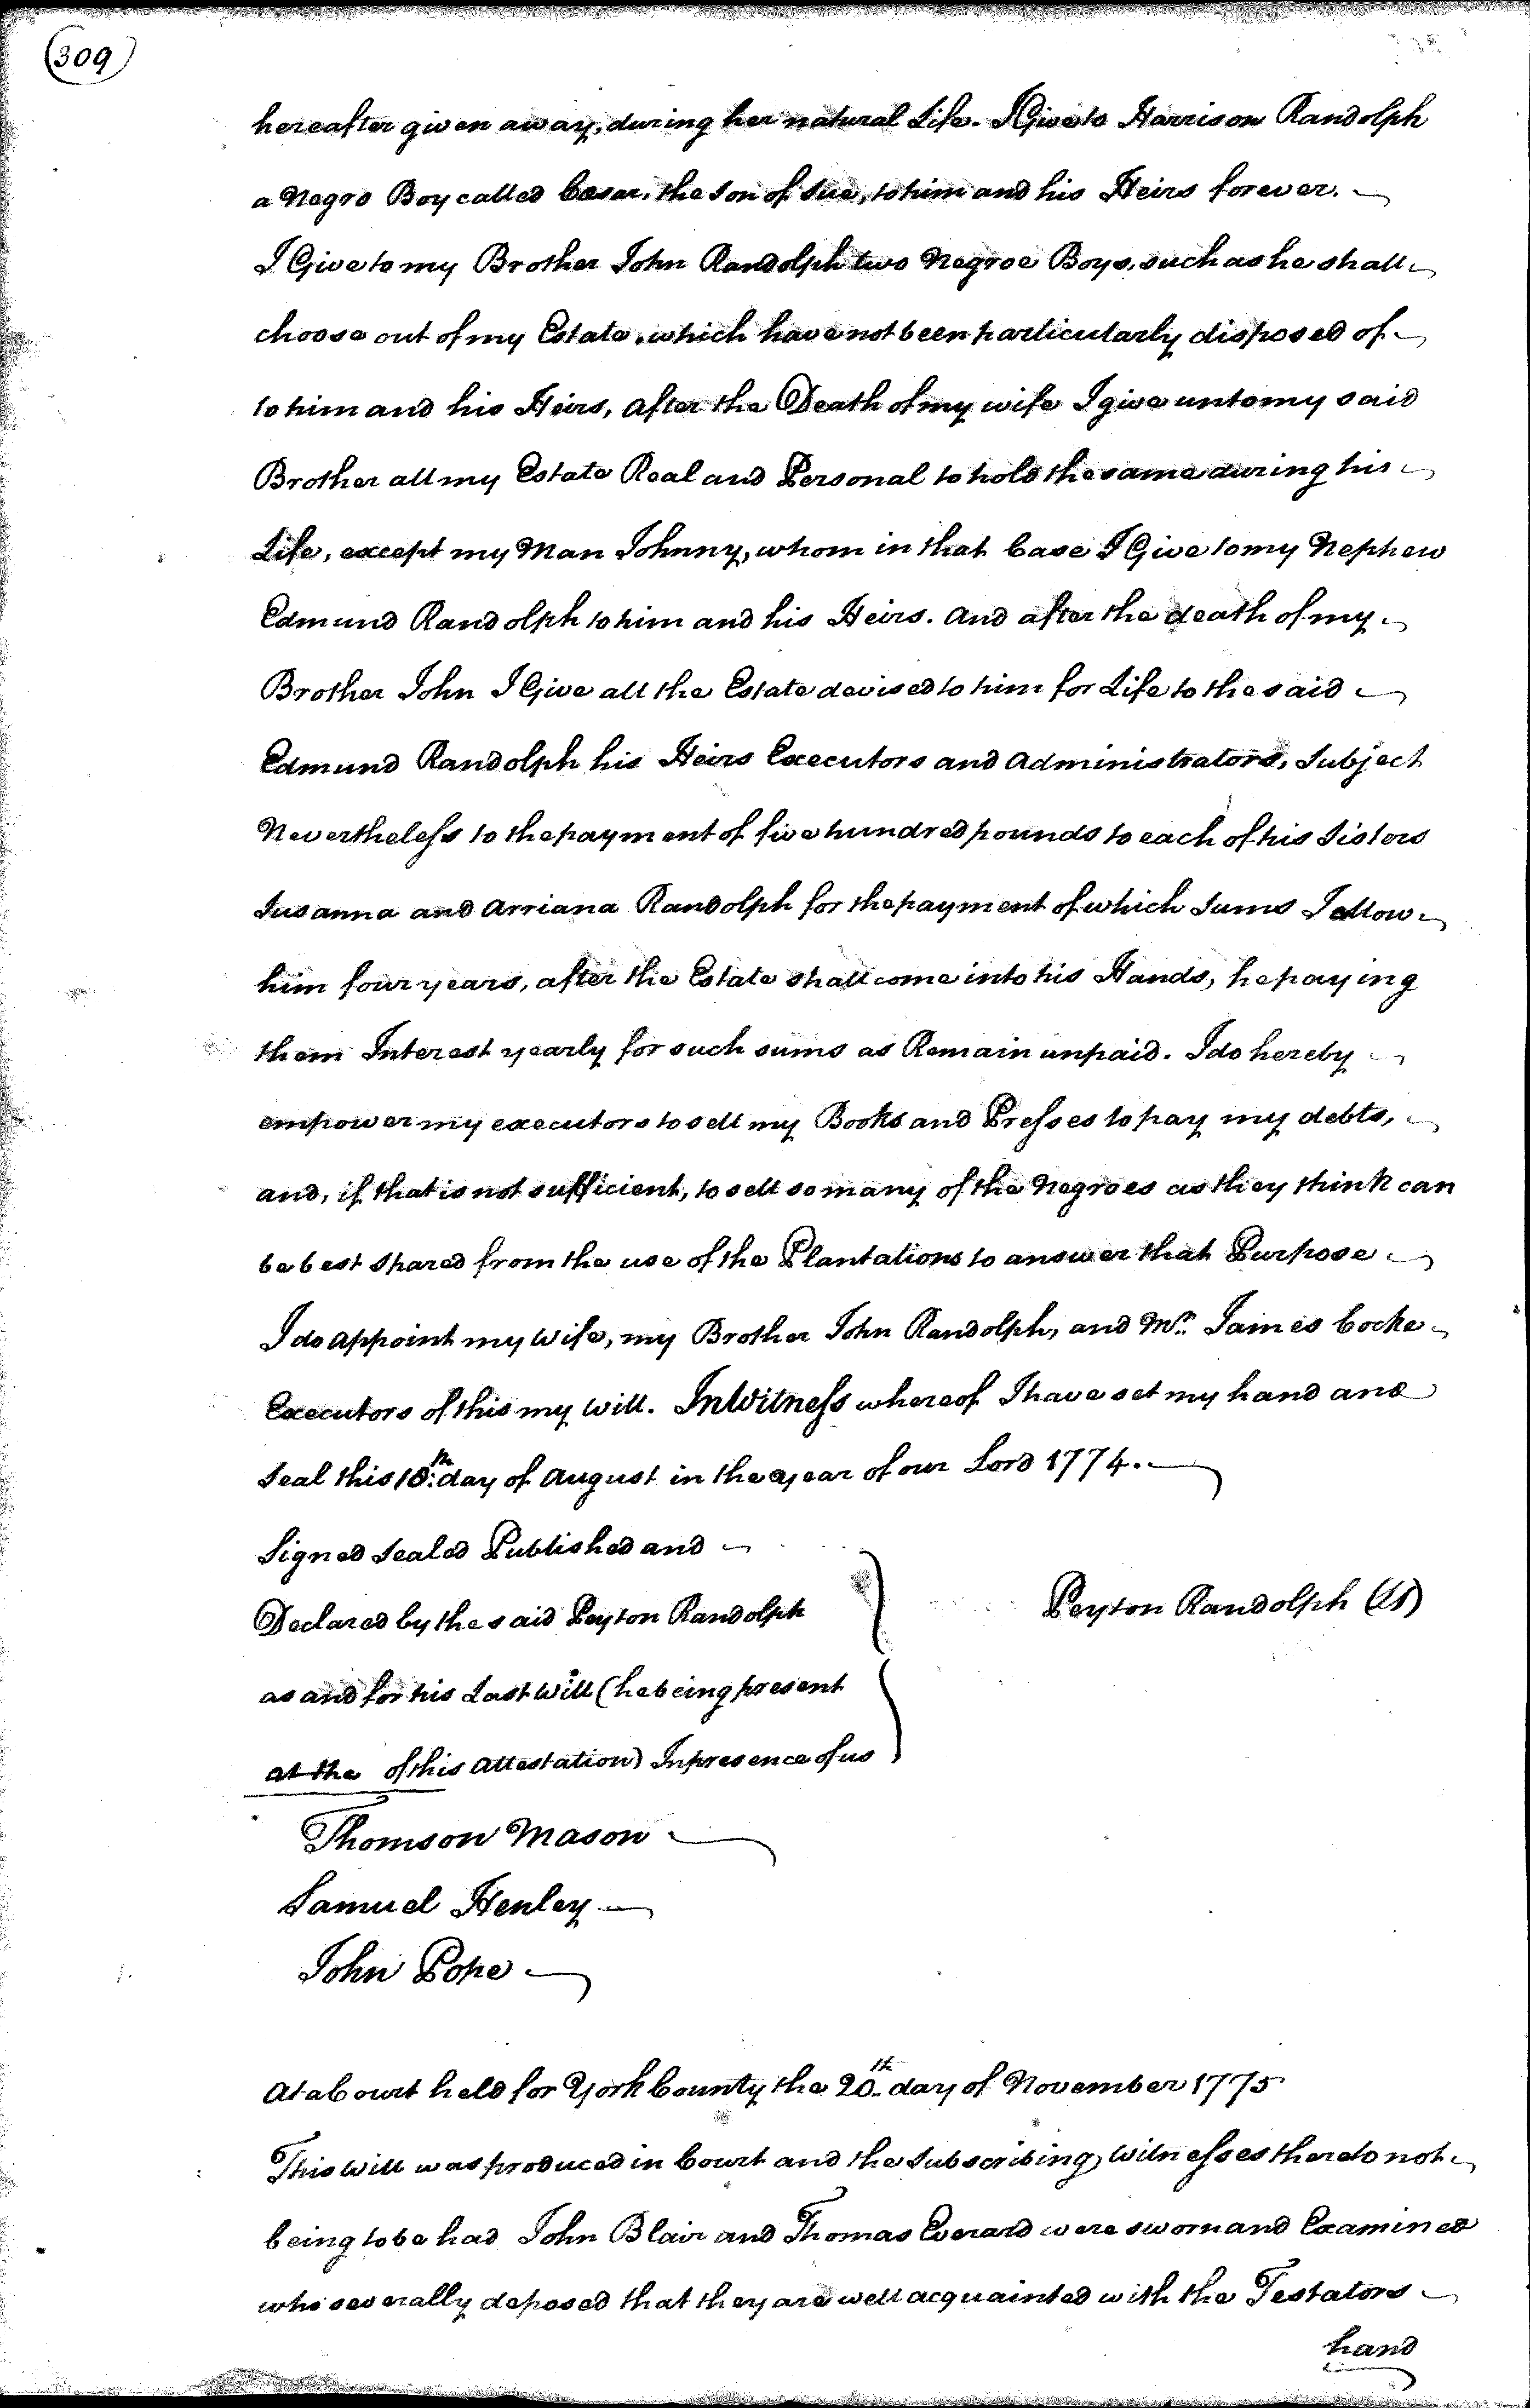 309
hereafter given away, during her natural Life. I Give to Harrison Randolph
a Negro Boy called Cæsar, the Son of Sue, to him and his Heirs forever.
I Give to my Brother John Randolph two Negroe Boys, such as he shall
choose out of my Estate, which have not been particularly disposed of
to him and his Heirs, after the Death of my wife I give unto my said
Brother all my Estate Real and Personal to hold the same during his
Life, except my Man Johnny, whom in that Case I Give to my Nephew
Edmund Randolph to him and his Heirs. And after the death of my
Brother John I Give all the Estate devised to him for Life to the said
Edmund Randolph his Heirs Executors and Administrators, Subject
Nevertheless to the payment of five hundred pounds to each of his Sisters
Susanna and Arriana Randolph for the payment of which Sums I allow
him four years, after the Estate shall come into his Hands, he paying
them Interest yearly for such sums as Remain unpaid. I do hereby
empower my executors to sell my Books and Presses to pay my debts,
and, if that is not sufficient, to sell so many of the Negroes as they think can
be best spared from the use of the Plantations to answer that Purpose
I do appoint my wife, my Brother John Randolph, and Mr. James Cocke
Executors of this my will. In Witness whereof I have set my hand and
Seal this 18th day of August in the year of our Lord 1774.
Signed Sealed Published and
Declared by the said Peyton Randolph
Peyton Randolph (LS)
as and for his Last Will (he being present
at the of this Attestation) In presence of us
Thomson Mason
Samuel Henley
John Pope
At a Court held for York County the 20th day of November 1775
This Will was produced in Court and the Subscribing Witnesses thereto not
being to be had John Blair and Thomas Everard were sworn and Examined
who severally deposed that they are well acquainted with the Testators
hand